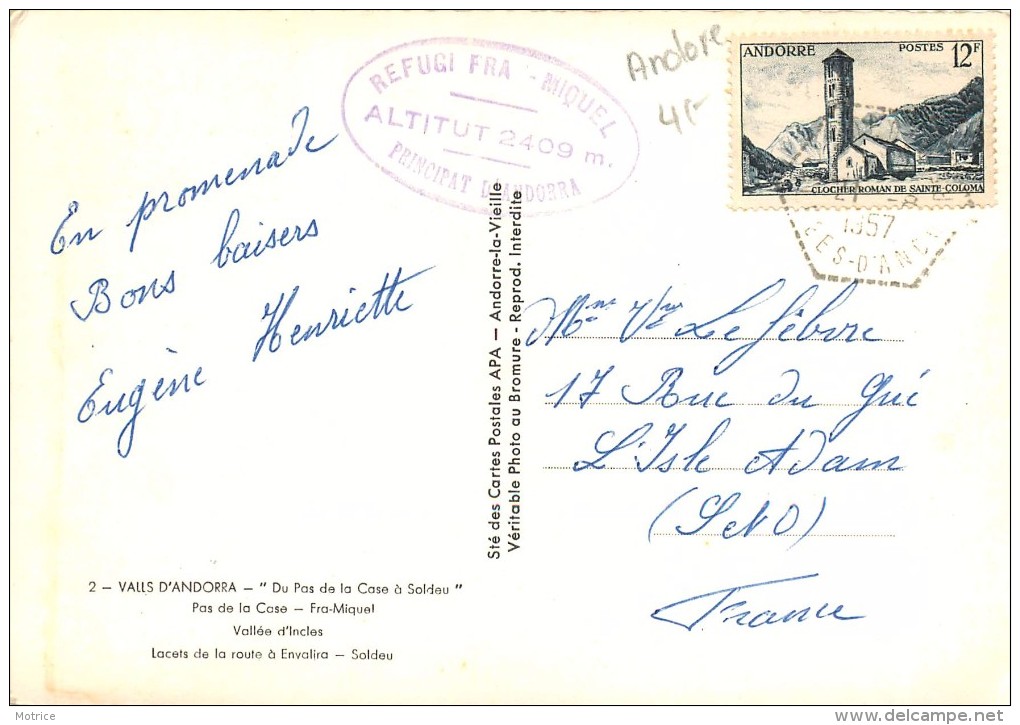 REFUGI FRA - MIQUEL
ALTITUT 2409 m.
PRINCIPAT D'ANDORRA
Andore
ANDORRE POSTES 12F
CLOCHER ROMAN DE SAINTE-COLOMA
1957
En promenade
Bons baisers
Eugène Henriette
Sté des Cartes Postales APA — Andorre-la-Vieille
Véritable Photo au Bromure - Reprod. Interdite
Mme Vve Lefèbvre
17 Rue du Gué
L'Isle Adam
(S et O)
France
2 — VALLS D'ANDORRA — " Du Pas de la Case à Soldeu "
Pas de la Case — Fra-Miquel
Vallée d'Incles
Lacets de la route à Envalira — Soldeu
Motrice
delcampe.net